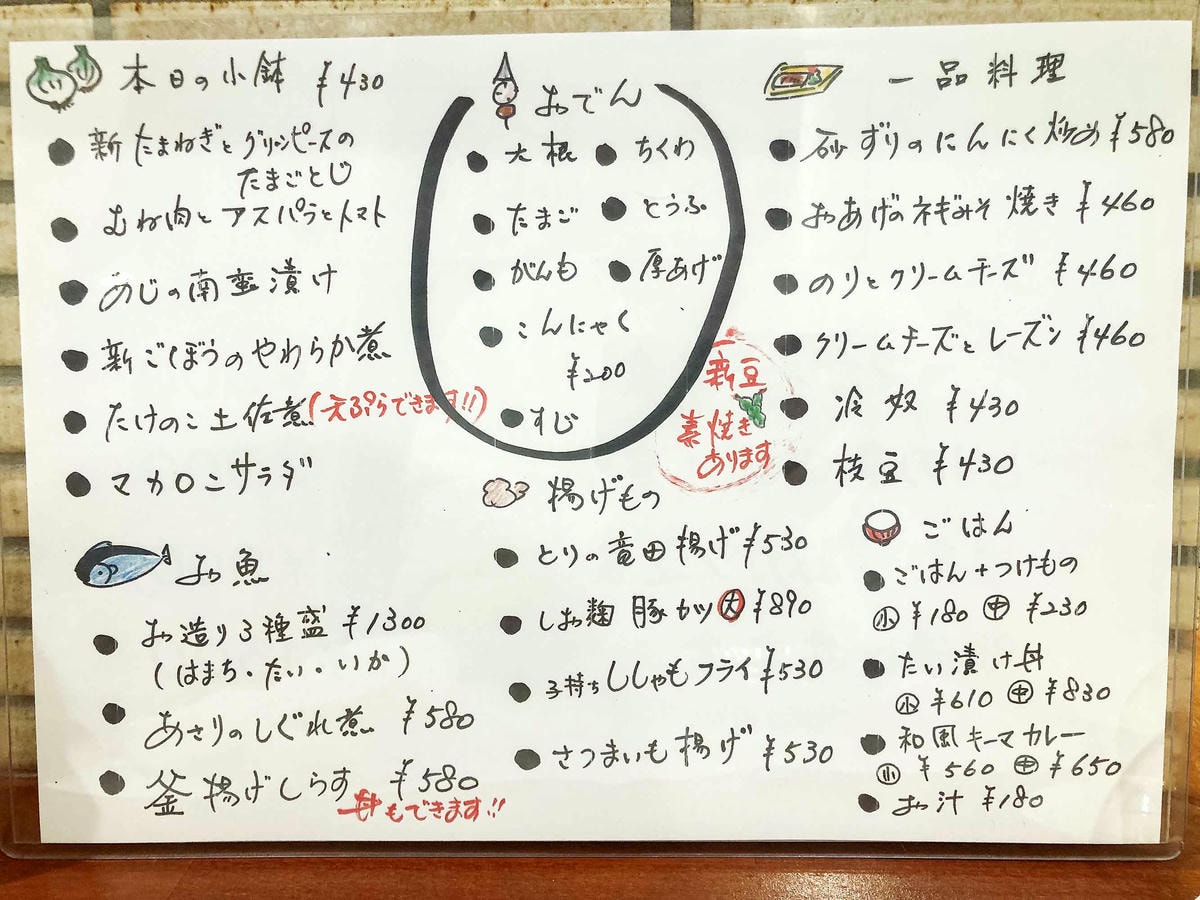 本日の小鉢 ¥430
● 新たまねぎとグリンピースの
たまごとじ
● むね肉とアスパラとトマト
● あじの南蛮漬け
● 新ごぼうのやわらか煮
● たけのこ土佐煮(天ぷらできます!!)
● マカロニサラダ
お魚
● お造り3種盛 ¥1300
(はまち・たい・いか)
● あさりのしぐれ煮 ¥580
● 釜揚げしらす ¥580
丼もできます!!
おでん
● 大根 ● ちくわ
● たまご ● とうふ
● がんも ● 厚あげ
● こんにゃく
¥200
● すじ
揚げもの
● とりの竜田揚げ ¥530
● しお麹豚カツ 大 ¥890
● 子持ちししゃもフライ ¥530
● さつまいも揚げ ¥530
一品料理
● 砂ずりのにんにく炒め ¥580
● おあげのネギみそ焼き ¥460
● のりとクリームチーズ ¥460
● クリームチーズとレーズン ¥460
● 冷奴 ¥430
● 枝豆 ¥430
豆
素焼き
あります
ごはん
● ごはん+つけもの
小 ¥180 中 ¥230
● たい漬け丼
小 ¥610 中 ¥830
● 和風キーマカレー
小 ¥560 中 ¥650
● お汁 ¥180